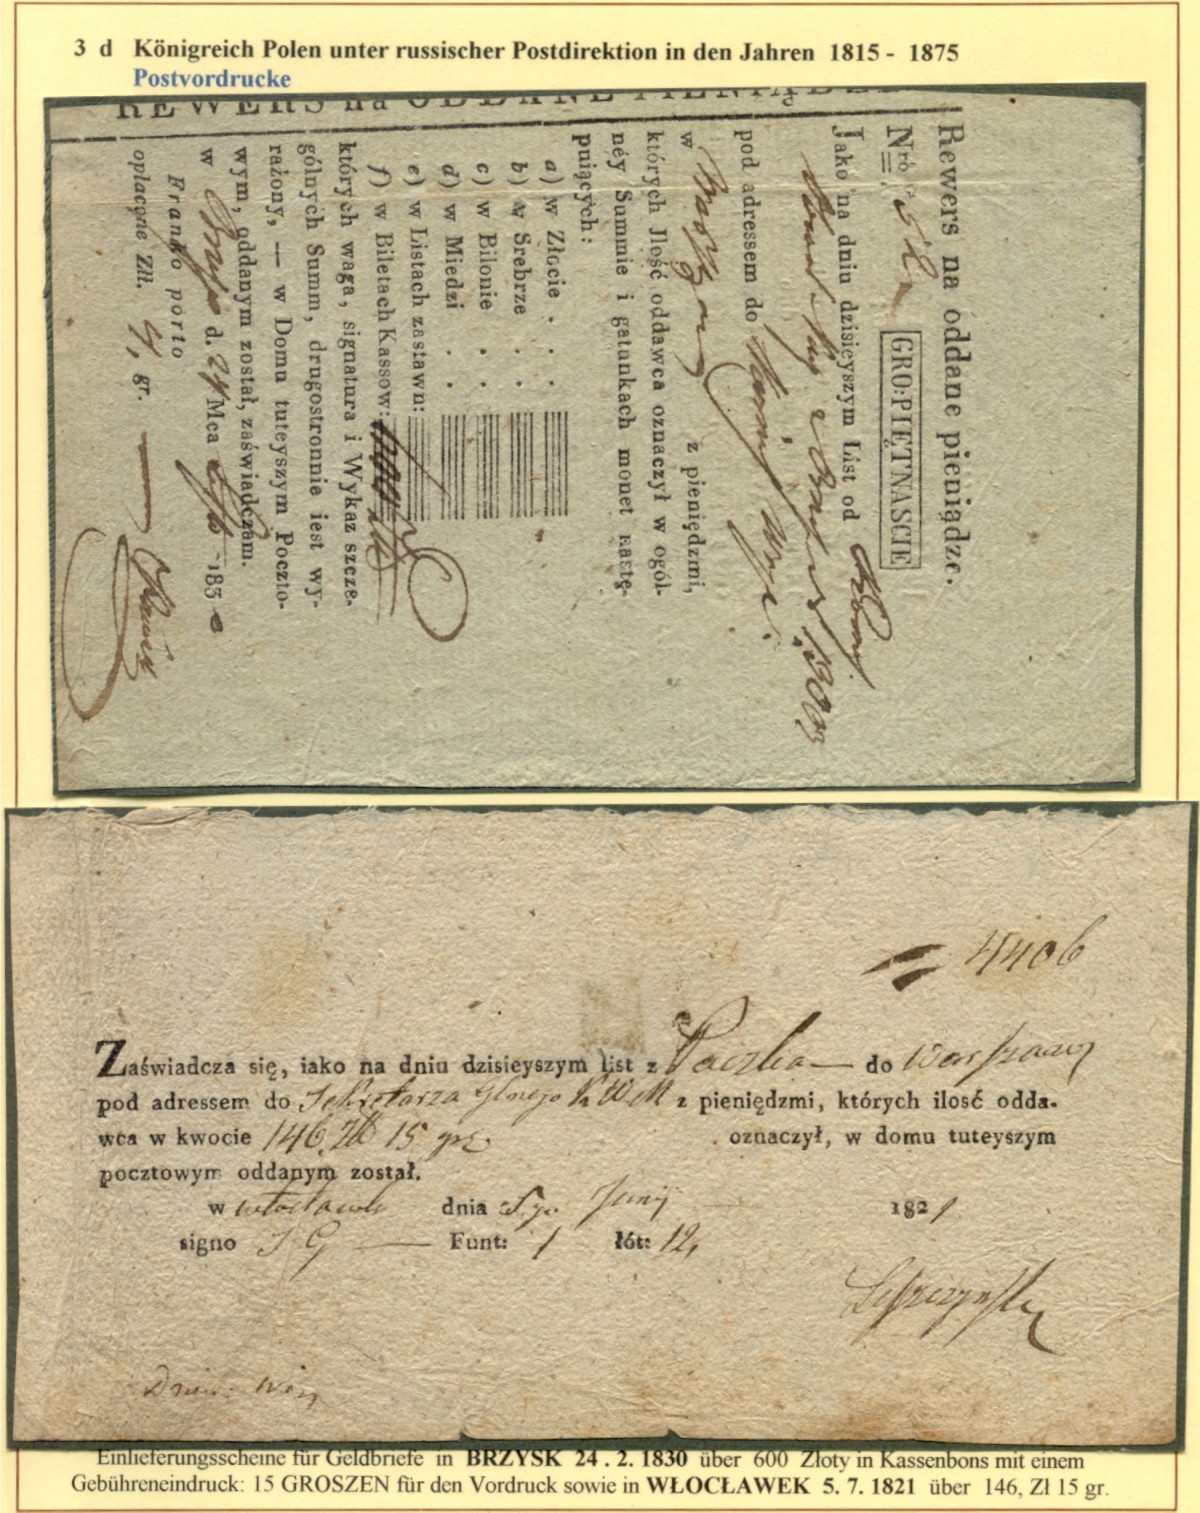 3 d Königreich Polen unter russischer Postdirektion in den Jahren 1815 - 1875
Postvordrucke
REWERS na ODDANE PIENIĄDZE
Rewers na oddane pieniądze.
Nrό GRO: PIĘTNASCIE
Jako na dniu dzisieyszym List od
pod adressem do
w z pieniędzmi,
których Jlość oddawca oznaczył w ogól-
néy Summie i gatunkach monet nastę-
puiących:
a) w Złocie . .
b) w Srebrze . .
c) w Bilonie . .
d) w Miedzi . .
e) w Listach zastawn:
f) w Biletach Kassow:
których waga, signatura i Wykaz szcze-
gólnych Summ, drugostronnie iest wy-
rażony, — w Domu tuteyszym Poczto-
wym, oddanym został, zaświadczam.
w d. 24 Mca 183
Franko porto
opłacone Złł. 4, gr. —
4406
Zaświadcza się, iako na dniu dzisieyszym list z Paczka — do Warszawy
pod adressem do Sekretarza Glnego K W M z pieniędzmi, których ilosć odda-
wca w kwocie 146 Zł 15 gr. oznaczył, w domu tuteyszym
pocztowym oddanym został.
w dnia 5 go Junij 1821
signo S G — Funt: 1 łót: 12,
Einlieferungsscheine für Geldbriefe in BRZYSK 24 . 2. 1830 über 600 Złoty in Kassenbons mit einem
Gebühreneindruck: 15 GROSZEN für den Vordruck sowie in WŁOCŁAWEK 5. 7. 1821 über 146, Zł 15 gr.